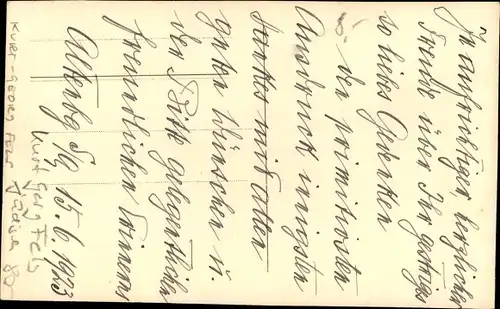 In aufrichtiger, herzlicher
Freude über Ihr gestriges
so liebes Gedenken
den primitivsten
Ausdruck innigsten
Dankes mit allen
guten Wünschen u.
der Bitte gelegentlichen
freundlichen Erinnerns
Altenbg S/A. 15.6.1923
Kurt Georg Fels
Kurt-Georg Fels